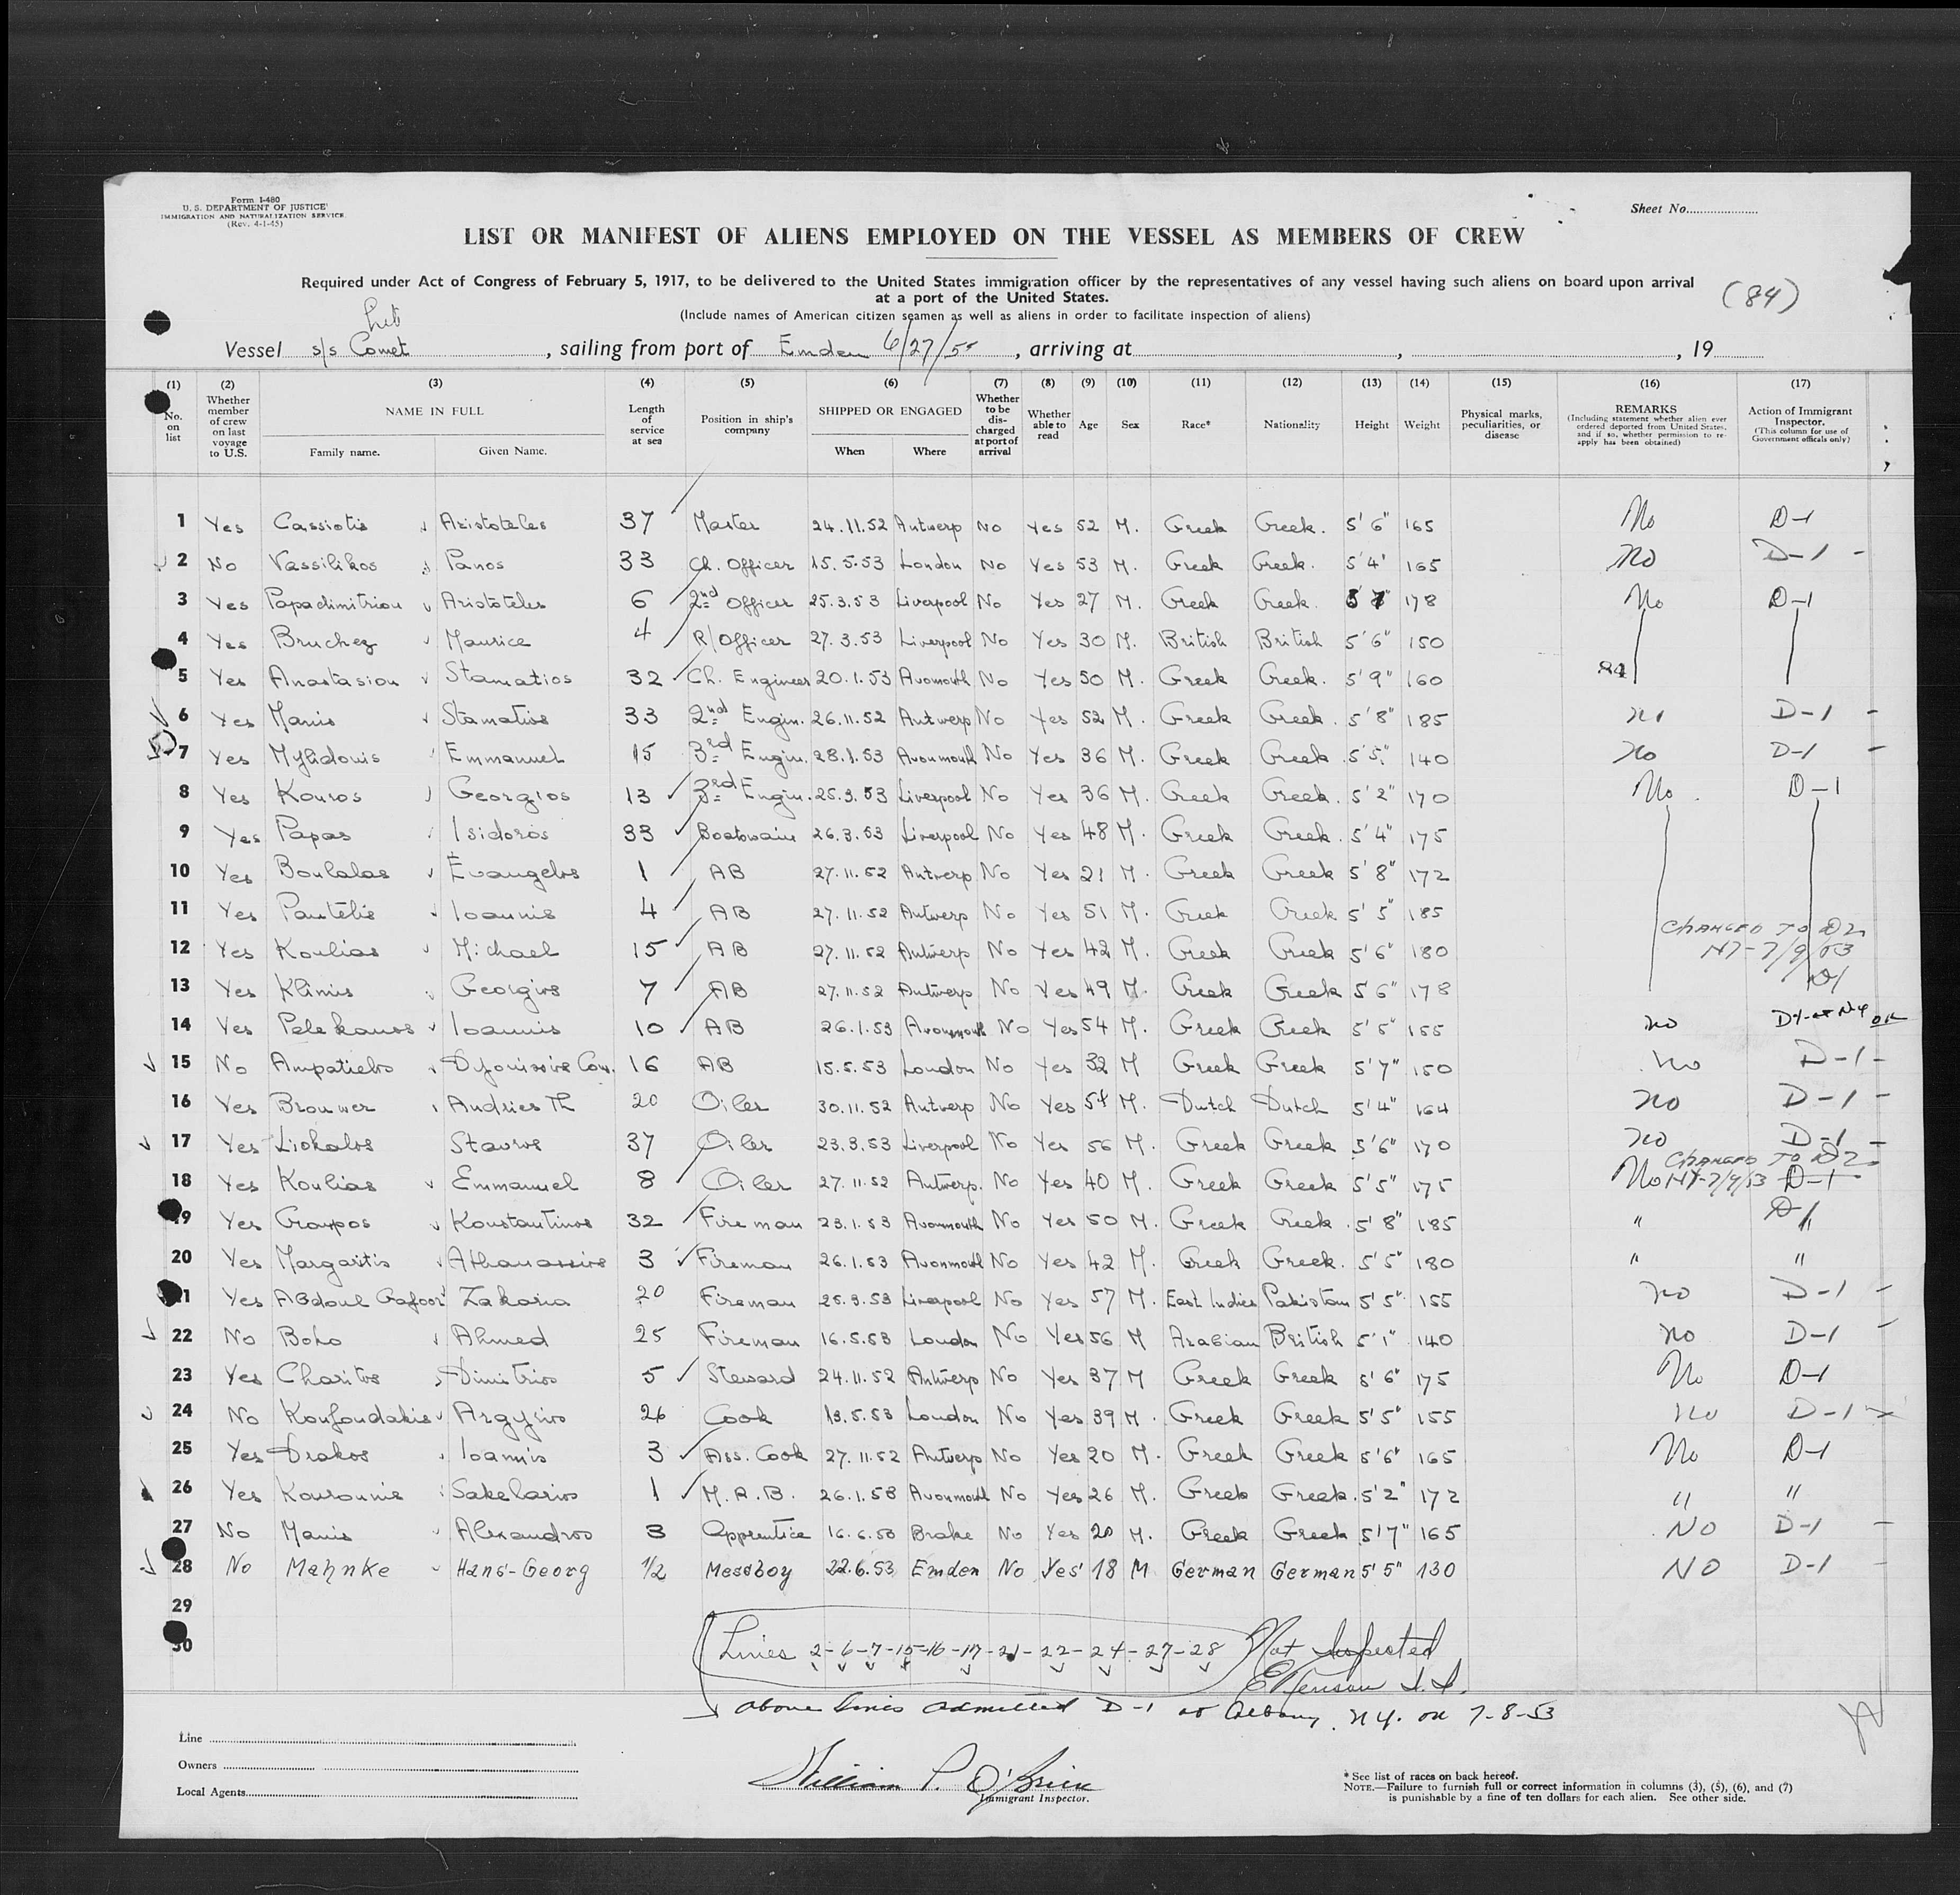 Form I-480
U. S. DEPARTMENT OF JUSTICE
IMMIGRATION AND NATURALIZATION SERVICE
(Rev. 4-1-45)
Sheet No.
LIST OR MANIFEST OF ALIENS EMPLOYED ON THE VESSEL AS MEMBERS OF CREW
Required under Act of Congress of February 5, 1917, to be delivered to the United States immigration officer by the representatives of any vessel having such aliens on board upon arrival
at a port of the United States.
(84)
(Include names of American citizen seamen as well as aliens in order to facilitate inspection of aliens)
Vessel s/s Comet, sailing from port of Emden 6/27/, arriving at , , 19
(1) (2) (3) (4) (5) (6) (7) (8) (9) (10) (11) (12) (13) (14) (15) (16) (17)
No. on list
Whether member of crew on last voyage to U.S.
NAME IN FULL
Family name. Given Name.
Length of service at sea
Position in ship's company
SHIPPED OR ENGAGED
When Where
Whether to be discharged at port of arrival
Whether able to read
Age
Sex
Race*
Nationality
Height
Weight
Physical marks, peculiarities, or disease
REMARKS
(Including statement whether alien ever ordered deported from United States, and if so, whether permission to re-apply has been obtained)
Action of Immigrant Inspector.
(This column for use of Government officals only)
1 Yes Cassiotis Aristoteles 37 Master 24.11.52 Antwerp No Yes 52 M. Greek Greek. 5'6" 165 No D-1
2 No Vassilikos Panos 33 Ch. Officer 15.5.53 London No Yes 53 M. Greek Greek. 5'4' 165 No D-1 -
3 Yes Papadimitriou Aristoteles 6 2nd Officer 25.3.53 Liverpool No Yes 27 M. Greek Greek. 5'7" 178 No D-1
4 Yes Bruchez Maurice 4 R/Officer 27.3.53 Liverpool No Yes 30 M. British British 5'6" 150
5 Yes Anastasiou Stamatios 32 Ch. Engineer 20.1.53 Avonmouth No Yes 50 M. Greek Greek. 5'9" 160 84
6 Yes Manis Stamatios 33 2nd Engin. 26.11.52 Antwerp No Yes 52 M. Greek Greek. 5'8" 185 No D-1 -
7 Yes Mylidonis Emmanuel 15 3rd Engin. 28.1.53 Avonmouth No Yes 36 M. Greek Greek 5'5" 140 No D-1 -
8 Yes Kouros Georgios 13 3rd Engin. 25.3.53 Liverpool No Yes 36 M. Greek Greek. 5'2" 170 No D-1
9 Yes Papas Isidoros 33 Boatswain 26.3.53 Liverpool No Yes 48 M. Greek Greek. 5'4" 175
10 Yes Boulalas Evangelos 1 AB 27.11.52 Antwerp No Yes 21 M. Greek Greek 5'8" 172
11 Yes Pantelis Ioannis 4 AB 27.11.52 Antwerp No Yes 51 M. Greek Greek 5'5" 185
CHANGED TO D2
12 Yes Koulias Michael 15 AB 27.11.52 Antwerp No Yes 42 M. Greek Greek 5'6" 180 NY-7/9/53
13 Yes Klimis Georgios 7 AB 27.11.52 Antwerp No Yes 49 M. Greek Greek 5'6" 178 D1
14 Yes Pelekanos Ioannis 10 AB 26.1.53 Avonmouth No Yes 54 M. Greek Greek 5'5" 155 No
15 No Ampatielos Dyonissios Con. 16 AB 15.5.53 London No Yes 32 M Greek Greek 5'7" 150 No D-1 -
16 Yes Brouwer Andries Th 20 Oiler 30.11.52 Antwerp No Yes 54 M. Dutch Dutch 5'4" 164 No D-1 -
17 Yes Liokalos Stavros 37 Oiler 23.3.53 Liverpool No Yes 56 M. Greek Greek 5'6" 170 No D-1 -
CHANGED TO D2
18 Yes Koulias Emmanuel 8 Oiler 27.11.52 Antwerp. No Yes 40 M. Greek Greek 5'5" 175 No NY-7/9/53 D-1
19 Yes Konstantinos 32 Fireman 23.1.53 Avonmouth No Yes 50 M. Greek Greek. 5'8" 185 " D-1
20 Yes Margaritis Athanassios 3 Fireman 26.1.53 Avonmouth No Yes 42 M. Greek Greek. 5'5" 180 " "
21 Yes Abdoul Gafoor Zakaria 20 Fireman 25.3.53 Liverpool No Yes 57 M. East Indies Pakistan 5'5" 155 No D-1 -
22 No Boho Ahmed 25 Fireman 16.5.53 London No Yes 56 M Arabian British 5'1" 140 No D-1 -
23 Yes Charitos Dimitrios 5 Steward 24.11.52 Antwerp No Yes 37 M Greek Greek 5'6" 175 No D-1
24 No Koufoudakis Argyrios 26 Cook 13.5.53 London No Yes 39 M. Greek Greek 5'5" 155 No D-1 -
25 Yes Drakos Ioannis 3 Ass. Cook 27.11.52 Antwerp No Yes 20 M. Greek Greek 5'6" 165 No D-1
26 Yes Kourounis Sakelarios 1 M.R.B. 26.1.53 Avonmouth No Yes 26 M. Greek Greek. 5'2" 172 " "
27 No Manis Alexandros 3 Apprentice 16.6.53 Brake No Yes 20 M. Greek Greek 5'7" 165 NO D-1 -
28 No Mahnke Hans-Georg 1/2 Messboy 22.6.53 Emden No Yes 18 M German German 5'5" 130 NO D-1 -
29
30
Lines 2-6-7-15-16-17-21-22-24-27-28 Not Inspected
above lines admitted D-1 at Albany, N.Y. on 7-8-53
Line
Owners
Local Agents
William P. O'Brien
Immigrant Inspector.
* See list of races on back hereof.
NOTE.—Failure to furnish full or correct information in columns (3), (5), (6), and (7)
is punishable by a fine of ten dollars for each alien. See other side.